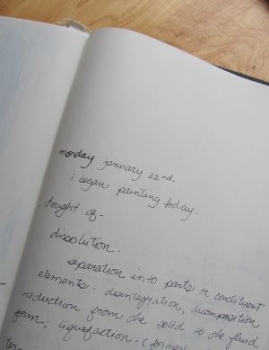 monday january 22nd.
i began painting today.
thought of -
dissolution.
separation into parts or constituent
elements. disintegration, decomposition
reduction from the solid to the fluid
form; liquefaction. (formed